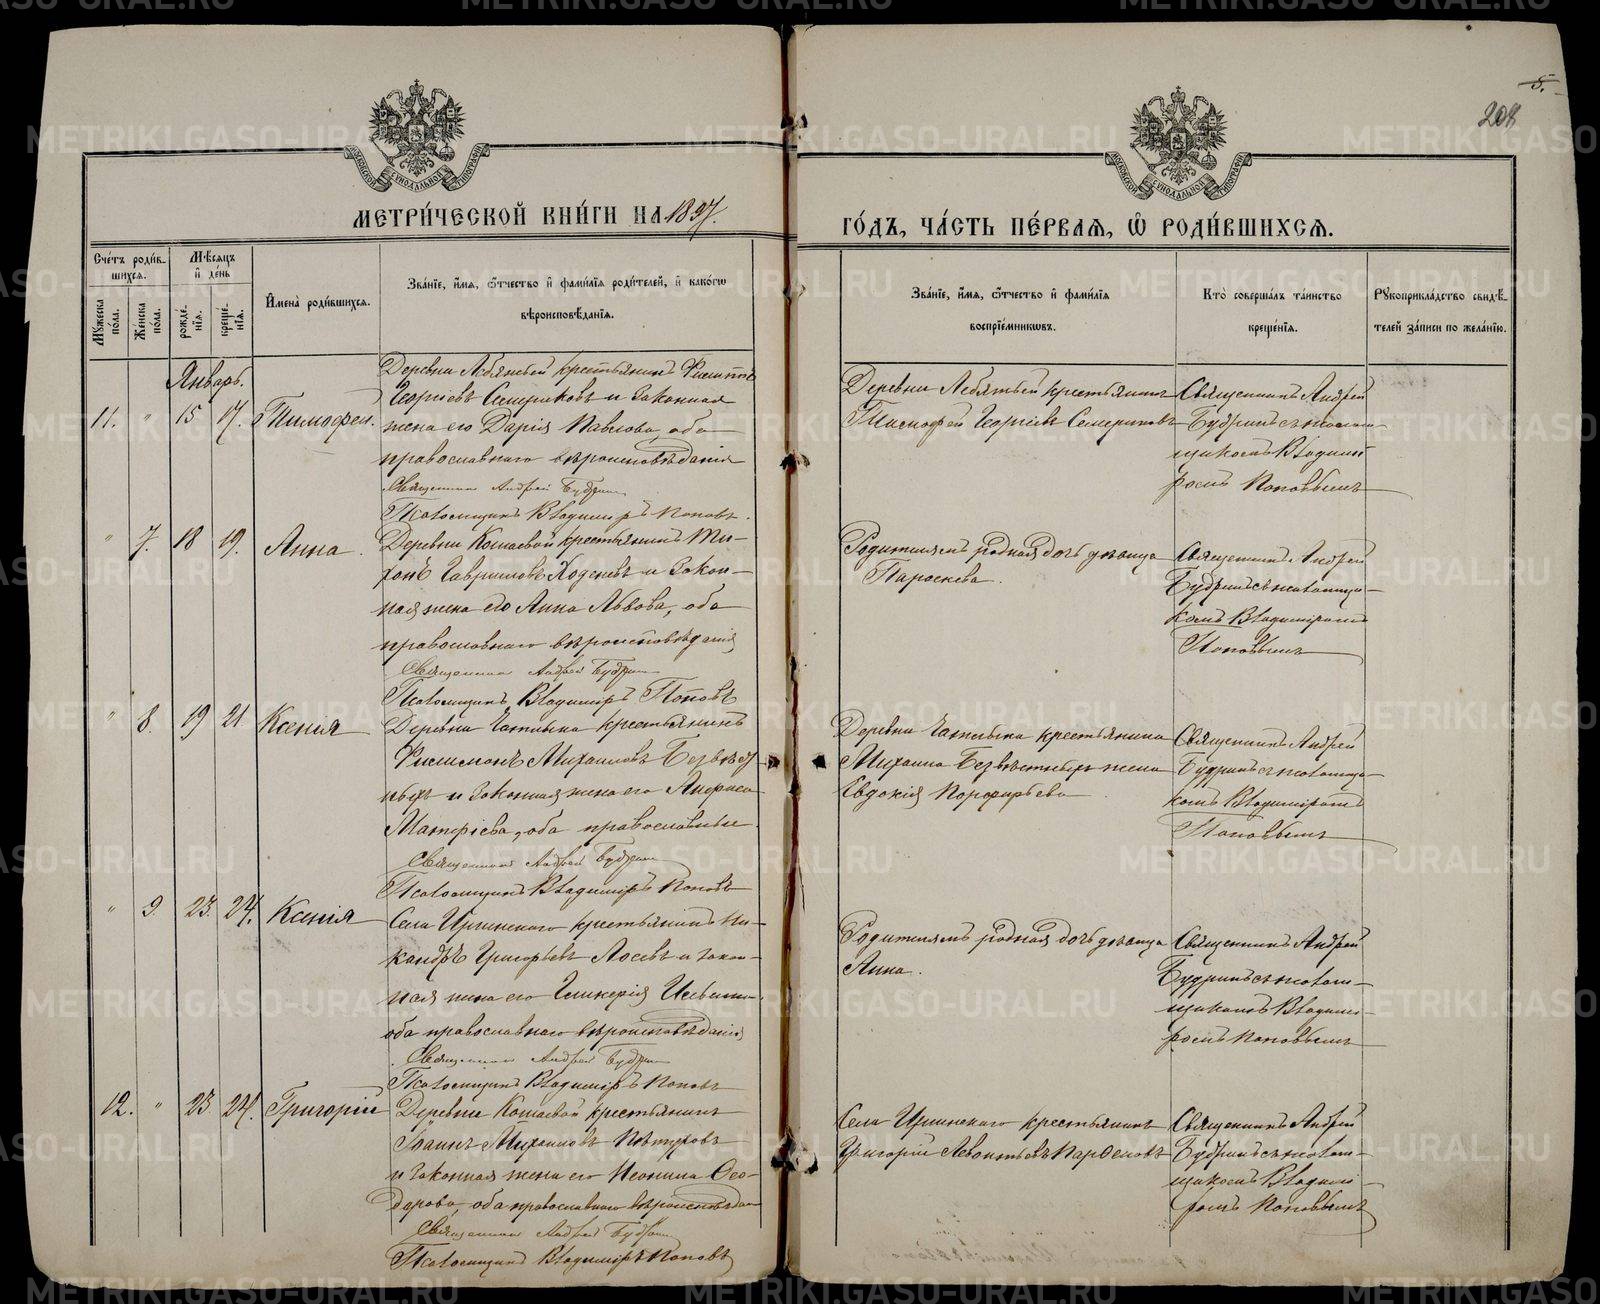 5.
208
МОСКОВСКОЙ СѴНОДАЛЬНОЙ ТИПОГРАФІИ
МОСКОВСКОЙ СѴНОДАЛЬНОЙ ТИПОГРАФІИ
МЕТРИ́ЧЕСКОЙ КНИ́ГИ НА 1897.
ГО́ДЪ, ЧА́СТЬ ПЕ́РВАЯ, Ѡ РОДИ́ВШИХСЯ.
Сче́тъ роди́в-
шихся.
Мѣ́сяцъ
и҆ де́нь
Мꙋ́жеска
по́ла.
Же́нска
по́ла.
рожде́-
нїя.
креще́-
нїя.
И҆мена̀ роди́вшихся.
Зва́нїе, и҆́мя, ѻ҆́тчество и҆ фами́лїя роди́телей, и҆ како́гѡ
вѣроисповѣ́данїя.
Зва́нїе, и҆́мя, ѻ҆́тчество и҆ фами́лїя
воспрїе́мникѡвъ.
Кто̀ соверша́лъ та́инство
креще́нїя.
Рꙋкоприкла́дство свидѣ́-
телей за́писи по жела́нїю.
Январь.
11. " 15 17. Тимофей.
Деревни Лебяжьей крестьянинъ
Георгіевъ Семериковъ и законная
жена его Дарія Павлова, оба
православнаго вѣроисповѣданія
Священникъ Андрей Будринъ
Псаломщикъ Владиміръ Поповъ.
Деревни Лебяжьей крестьянинъ
Тимофей Георгіевъ Семериковъ
Священникъ Андрей
Будринъ съ псалом-
щикомъ Владимі-
ромъ Поповымъ
" 7. 18 19. Анна.
Деревни Кошаевой крестьянинъ Ти-
хонъ Гавриловъ Ходыревъ и закон-
ная жена его Анна Львова, оба
православнаго вѣроисповѣданія
Священникъ Андрей Будринъ
Псаломщикъ Владиміръ Поповъ
Родителямъ родная дочь дѣвица
Параскева.
Священникъ Андрей
Будринъ съ псаломщи-
комъ Владиміромъ
Поповымъ
" 8. 19 21 Ксенія
Деревни крестьянинъ
Филимонъ Михаиловъ Безвѣст-
ныхъ и законная жена его Анфиса
Матфіева, оба православные
Священникъ Андрей Будринъ
Псаломщикъ Владиміръ Поповъ
Деревни крестьянина
Михаила Безвѣстныхъ жена
Евдокія Порфирьева
Священникъ Андрей
Будринъ съ псаломщи-
комъ Владиміромъ
Поповымъ
" 9. 23. 24. Ксенія
Села Иргинскаго крестьянинъ Ни-
кандръ Григорьевъ Лосевъ и закон-
ная жена его Гликерія
оба православнаго вѣроисповѣданія
Священникъ Андрей Будринъ
Псаломщикъ Владиміръ Поповъ
Родителямъ родная дочь дѣвица
Анна.
Священникъ Андрей
Будринъ съ псалом-
щикомъ Владимі-
ромъ Поповымъ
12. " 23 24. Григорій
Деревни Кошаевой крестьянинъ
Іоаннъ Михаиловъ Пѣтуховъ
и законная жена его Неонила Ѳео-
дорова, оба православнаго вѣроисповѣдан
Священникъ Андрей Будринъ
Псаломщикъ Владиміръ Поповъ
Села Иргинскаго крестьянинъ
Григорій Леонтьевъ Парѳеновъ
Священникъ Андрей
Будринъ съ псалом-
щикомъ Владимі-
ромъ Поповымъ
METRIKI.GASO-URAL.RU